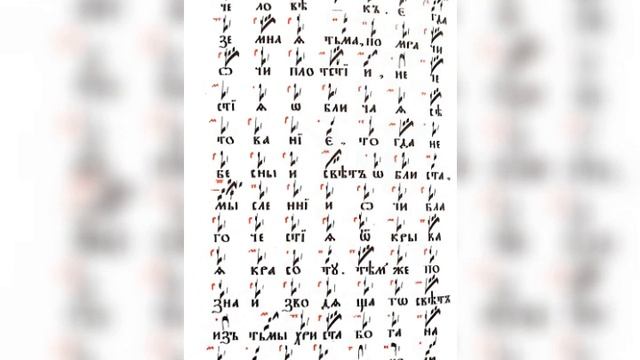 че ло вѣ – къ. є гда
зе мна ѧ тьма, по мра чи
ѡ чи плотстїи, не че
стї ѧ ѡ бли ча ѧ сѣ
то ва нї є. то гда не
бе сны и свѣтъ ѡ бли ста,
мы сле ннї и ѡ чи бла
го че стї ѧ ѿ кры ва
ѧ кра со ту. тѣм же по
зна и зво дѧ ща то свѣтъ
изъ тьмы хри ста бо га на